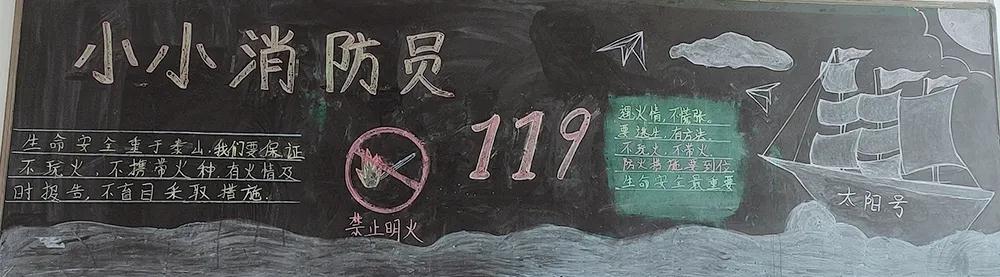 小小消防员
生命安全重于泰山,我们要保证
不玩火、不携带火种,有火情及
时报告,不盲目采取措施.
禁止明火
119
遇火情,不慌张。
要逃生,有方法.
不玩火,不带火,
防火措施要到位
生命安全最重要
太阳号